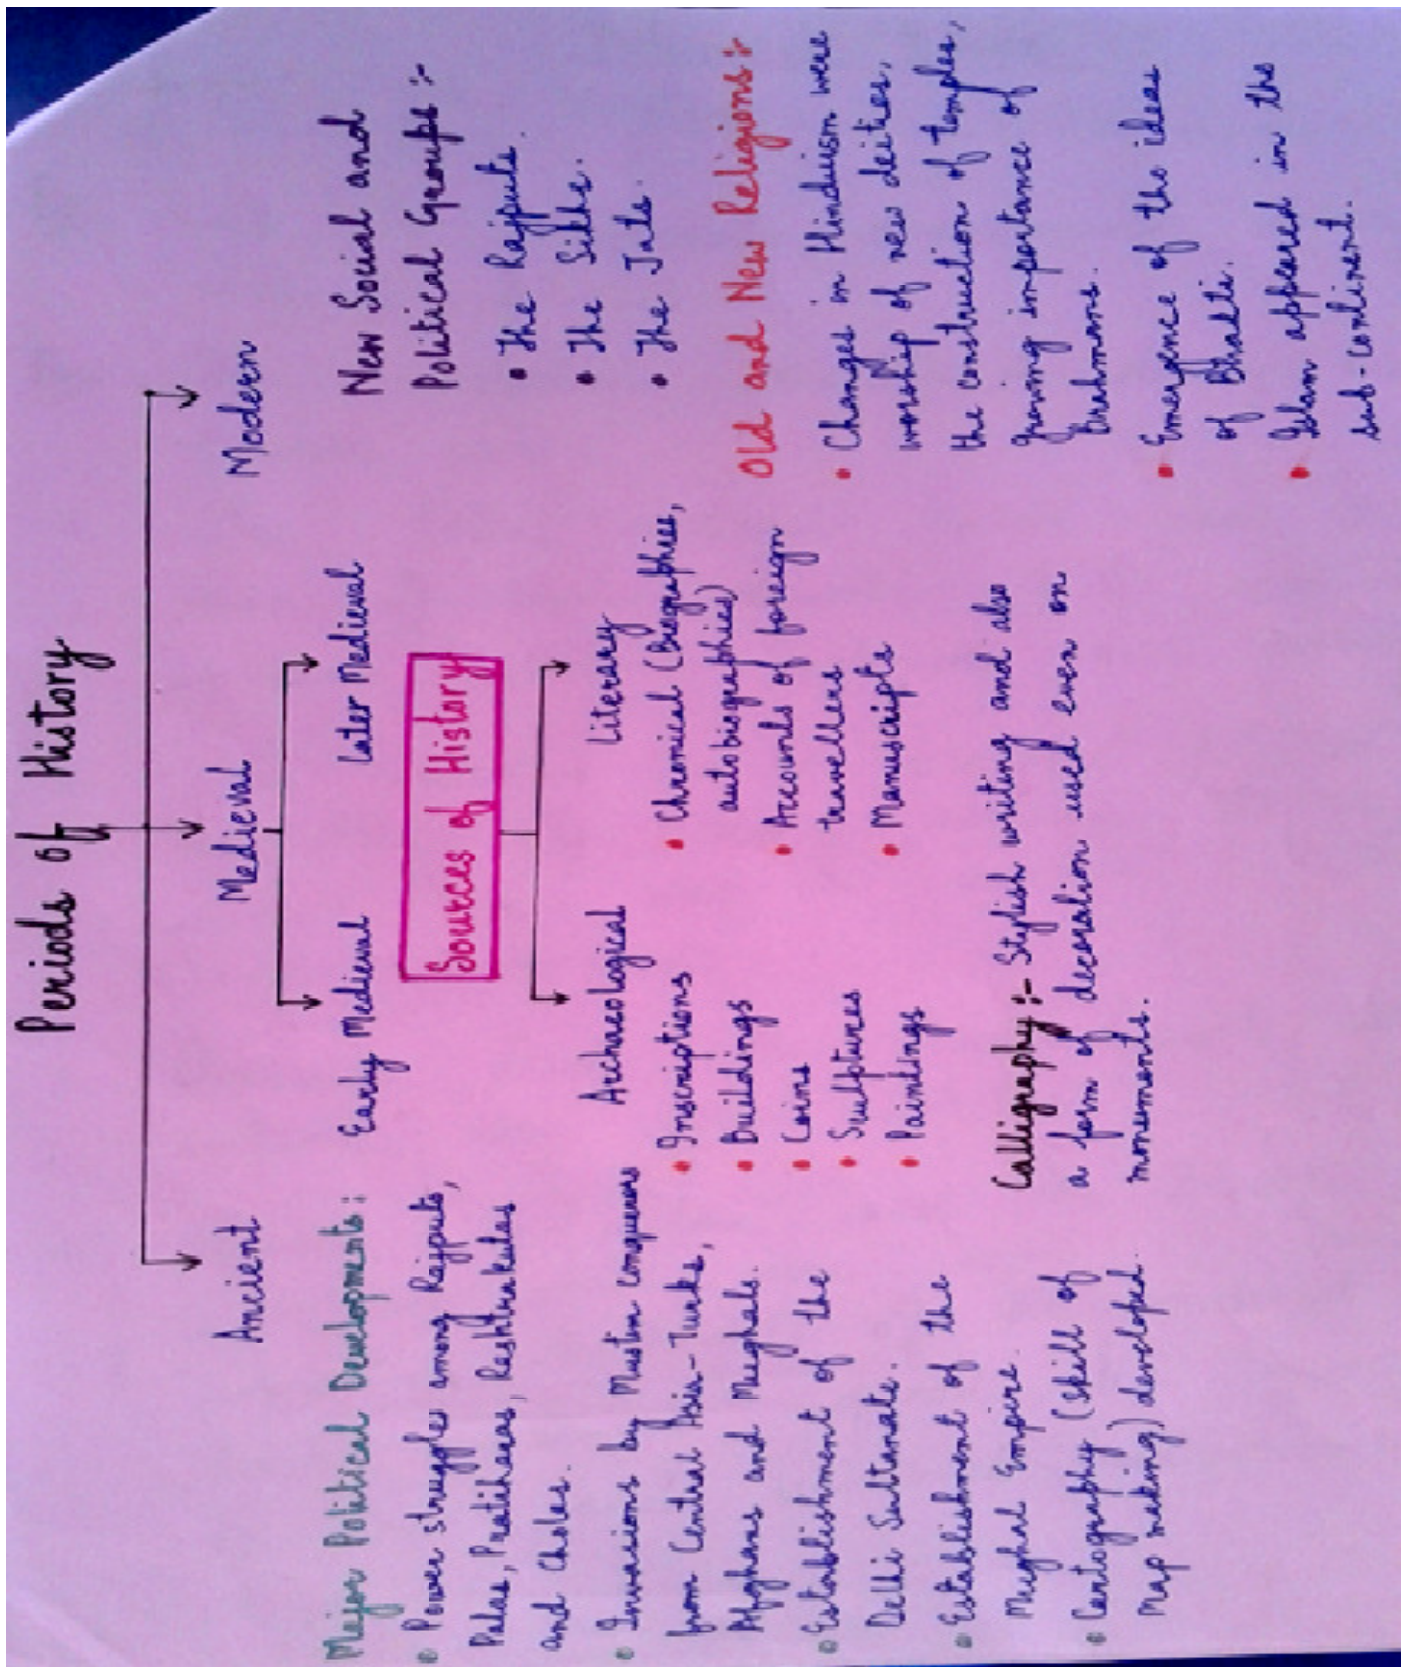 Periods of History
Ancient
Medieval
Modern
Early Medieval
Later Medieval
Major Political Developments:
• Power struggles among Rajputs,
Palas, Pratiharas, Rashtrakutas
and Cholas.
• Invasions by Muslim conquerors
from Central Asia-Turks,
Afghans and Mughals.
• Establishment of the
Delhi Sultanate.
• Establishment of the
Mughal Empire.
• Cartography (Skill of
Map making) developed.
Sources of History
Archaeological
• Inscriptions
• Buildings
• Coins
• Sculptures
• Paintings
Literary
• Chronical (Biographies,
autobiographies)
• Accounts of foreign
travellers
• Manuscripts
Calligraphy :- Stylish writing and also
a form of decoration used even on
monuments.
New Social and
Political Groups :-
• The Rajputs.
• The Sikhs.
• The Jats.
Old and New Religions:-
• Changes in Hinduism were
worship of new deities,
the construction of temples,
growing importance of
Brahmans.
• Emergence of the ideas
of Bhakti.
• Islam appeared in the
sub-continent.